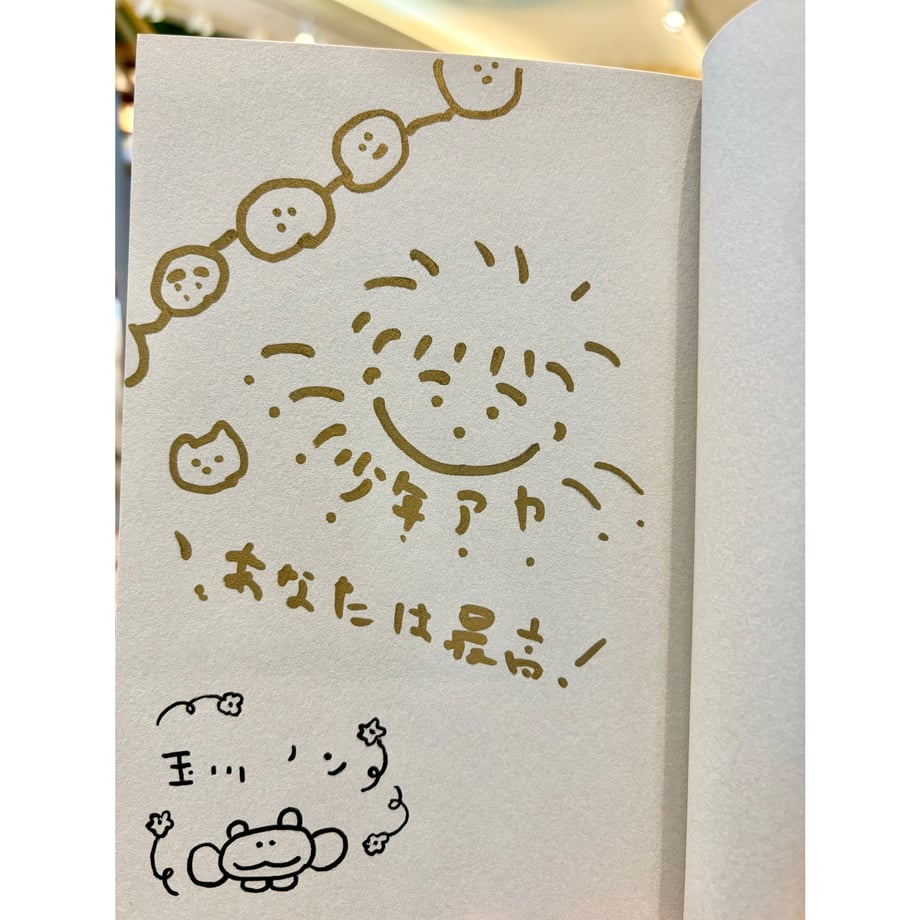 少年アヤ
！あなたは最高！
玉川ノン